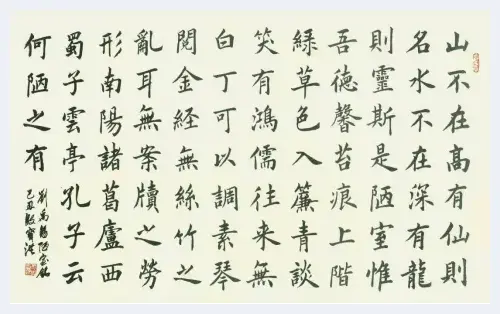 山不在高有仙則
名水不在深有龍
則靈斯是陋室惟
吾德馨苔痕上階
綠草色入簾青談
笑有鴻儒往来無
白丁可以調素琴
閱金經無絲竹之
亂耳無案牘之勞
形南陽諸葛廬西
蜀子雲亭孔子云
何陋之有
劉禹錫陋室銘
己丑